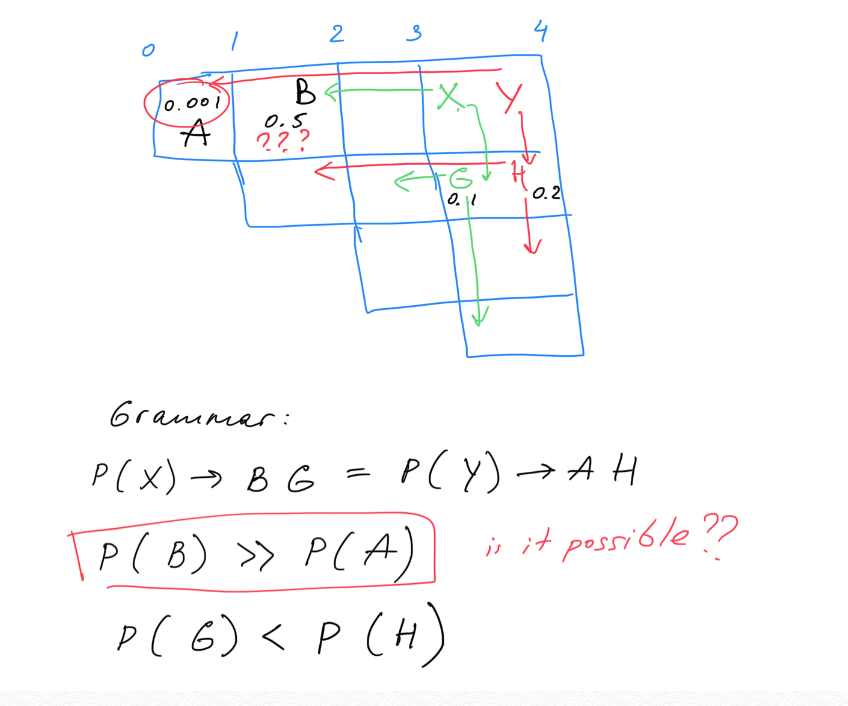 0 1 2 3 4
0.001 B X Y
A 0.5
???
G H
0.1 0.2
Grammar:
P(X) → B G = P(Y) → A H
P(B) >> P(A) is it possible??
P(G) < P(H)